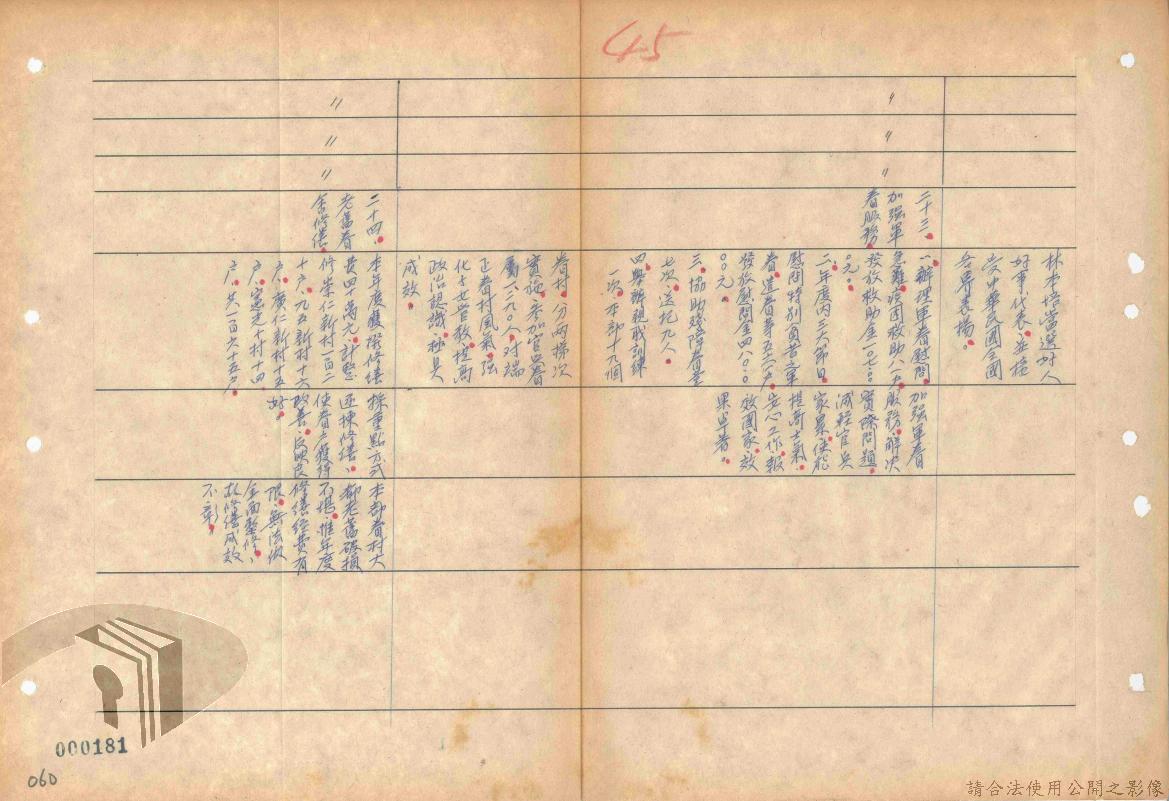 45
〃
〃
〃
林本培當選好人
好事代表、並接
受中華民國全國
各界表揚。
二十三、
加強軍
眷服務
一、辦理軍眷慰問
急難災困救助八一戶
發放救助金一〇七〇〇
〇元。
二、年度內三大節日
慰問特別貧苦之軍
眷、遺眷等五六一戶
發放慰問金四八〇〇
〇〇元。
三、協助殘障眷童
七次、送托九人
四、舉辦親職訓練
一次、本部十九個
眷村、分兩梯次
實施、參加官兵眷
屬一二九〇人、對端
正眷村風氣、強
化子女管教、提高
政治認識、極具
成效。
加強軍眷
服務、解決
實際問題
減輕官兵
家累、使能
提高士氣、
安心工作、報
效國家、效
果卓著。
〃
〃
〃
二十四、
老舊眷
舍修繕
本年度獲撥修繕
費四十萬元、計整
修榮仁新村一百二
十戶、九五新村十六
戶、廣仁新村十五
戶、憲光十村十四
戶、共一百六十五戶。
採重點方式
逐棟修繕、
使眷戶獲得
改善、反映良
好。
本部眷村大
都老舊破損
不堪、惟年度
修繕經費有
限、無法做
全面整修、
故修繕成效
不彰。
000181
060
請合法使用公開之影像